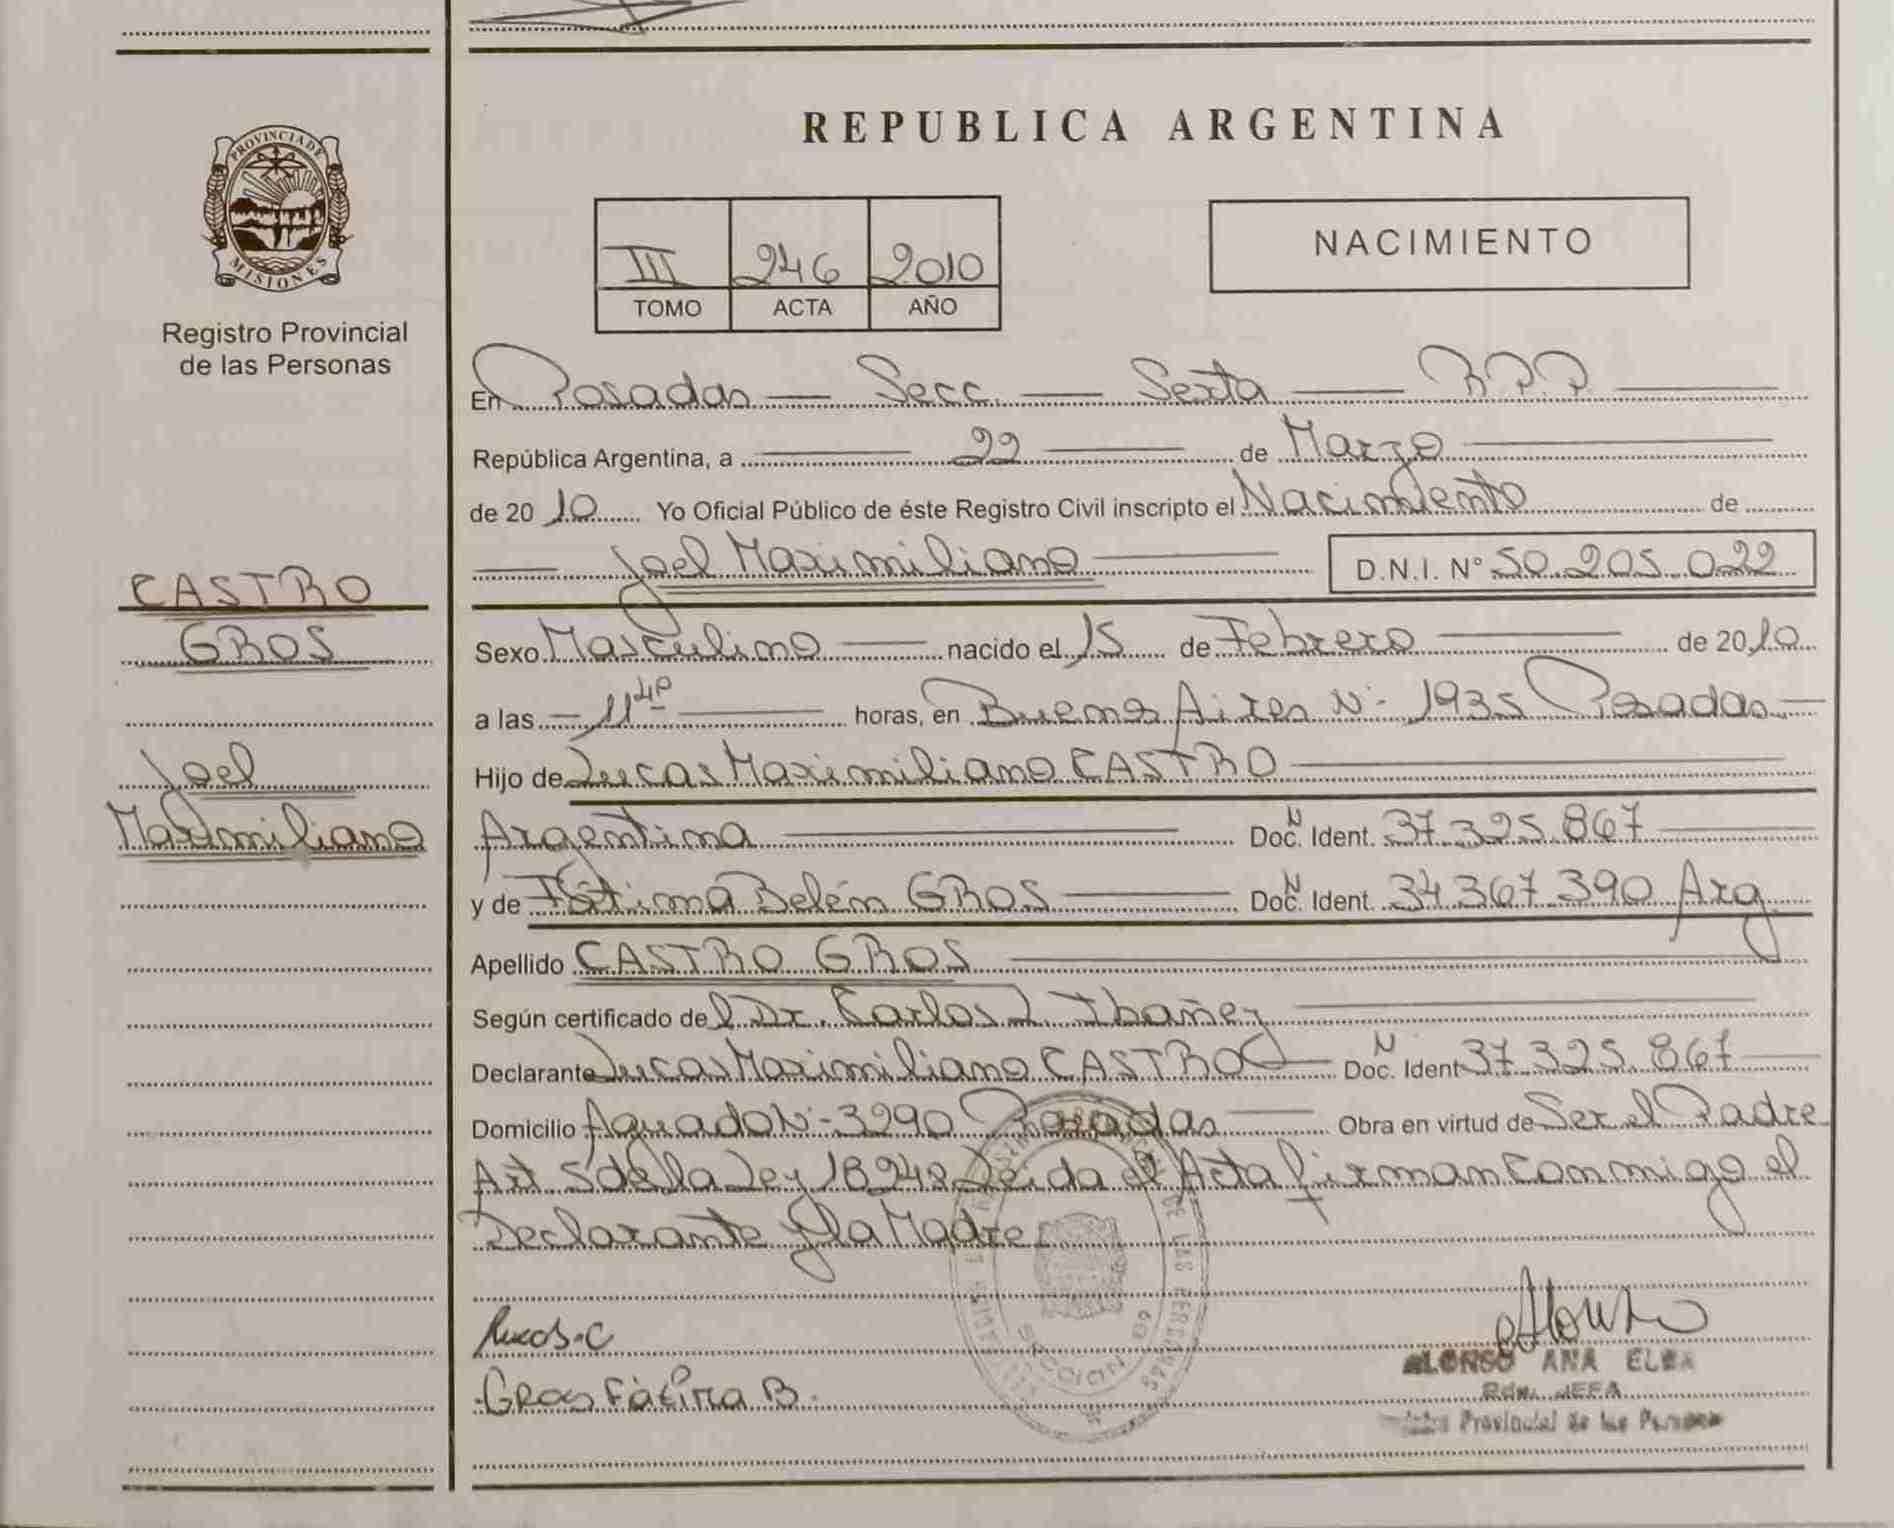 REPUBLICA ARGENTINA
PROVINCIA DE
MISIONES
Registro Provincial
de las Personas
III 246 2010
TOMO ACTA AÑO
NACIMIENTO
En Posadas — Secc. — Sexta — R.P.P.
República Argentina, a 22 de Marzo
de 2010 Yo Oficial Público de éste Registro Civil inscripto el Nacimiento de
Joel Maximiliano D.N.I. N° 50.205.022
CASTRO
GROS
Joel
Maximiliano
Sexo Masculino nacido el 15 de Febrero de 2010
a las 11 40 horas, en Buenos Aires N° 1935 Posadas
Hijo de Lucas Maximiliano CASTRO
Argentina Doc. N Ident. 37.325.867
y de Fátima Belén GROS Doc. N Ident. 34.367.390 Arg.
Apellido CASTRO GROS
Según certificado del Dr. Carlos L. Ibañez
Declarante Lucas Maximiliano CASTRO Doc. N Ident 37.325.867
Domicilio Aguado N° 3290 Posadas Obra en virtud de Ser el Padre
Art 5 de la Ley 18248 Leida el Acta firman conmigo el
Declarante y la Madre
Lucas.C
Gros Fátima B.
SECCION 6a
DE LAS PERSONAS
ALONSO ANA ELBA
JEFA
Provincial de las Personas